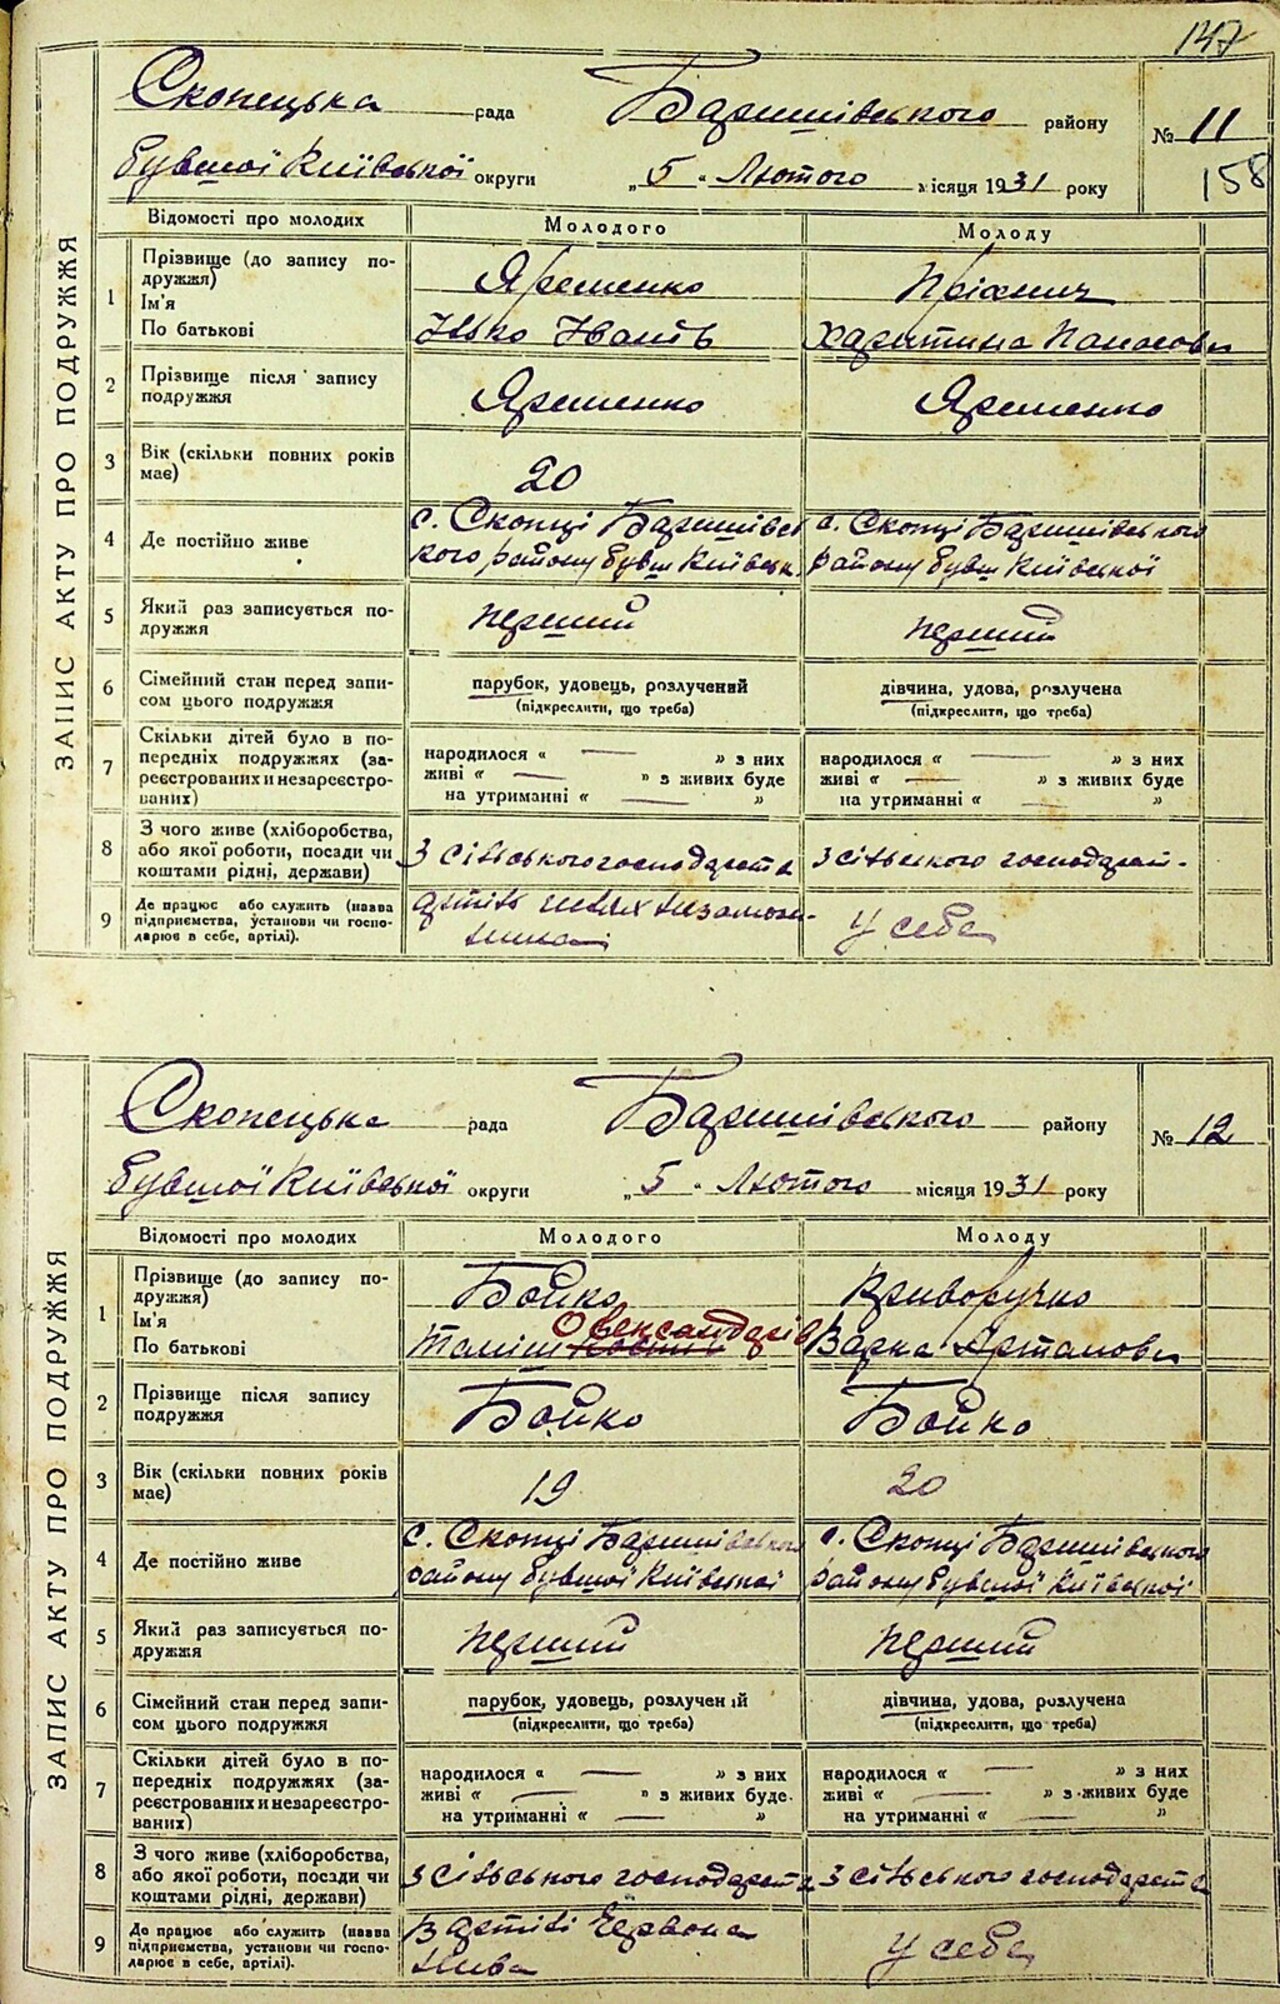 147
ЗАПИС АКТУ ПРО ПОДРУЖЖЯ
Скопецька рада Баришівського району № 11
бувшої Київської округи „5“ Лютого місяця 1931 року 158
Відомості про молодих Молодого Молоду
1 Прізвище (до запису по-
дружжя) Яременко
Ім'я
По батькові Ілько Іванів Харитина Панасовн
2 Прізвище після запису
подружжя Яременко Яременко
3 Вік (скільки повних років
має) 20
4 Де постійно живе
с. Скопці Баришівсь с. Скопці Баришівського
кого району бувш Київськ. району бувш Київської
5 Який раз записується по-
дружжя перший перший
6 Сімейний стан перед запи-
сом цього подружжя
парубок, удовець, розлучений дівчина, удова, розлучена
(підкреслити, що треба) (підкреслити, що треба)
7 Скільки дітей було в по-
передніх подружжях (за-
реєстрованих и незареєстро-
ваних)
народилося « — » з них народилося « — » з них
живі « — » з живих буде живі « — » з живих буде
на утриманні « — » на утриманні « — »
8 З чого живе (хліборобства,
або якої роботи, посади чи
коштами рідні, держави)
З сільського господарств З сільського господарст-
9 Де працює або служить (назва
підприємства, установи чи госпо-
дарює в себе, артілі).
у себе
ЗАПИС АКТУ ПРО ПОДРУЖЖЯ
Скопецька рада Баришівського району № 12
бувшої Київської округи „5“ Лютого місяця 1931 року
Відомості про молодих Молодого Молоду
1 Прізвище (до запису по-
дружжя) Бойко Криворучко
Ім'я Олександрів
По батькові Варка Артамовн
2 Прізвище після запису
подружжя Бойко Бойко
3 Вік (скільки повних років
має) 19 20
4 Де постійно живе
с. Скопці Баришівського с. Скопці Баришівського
району бувшої Київської району бувшої Київської
5 Який раз записується по-
дружжя перший перший
6 Сімейний стан перед запи-
сом цього подружжя
парубок, удовець, розлучений дівчина, удова, розлучена
(підкреслити, що треба) (підкреслити, що треба)
7 Скільки дітей було в по-
передніх подружжях (за-
реєстрованих и незареєстро-
ваних)
народилося « — » з них народилося « — » з них
живі « — » з живих буде живі « — » з живих буде
на утриманні « — » на утриманні « — »
8 З чого живе (хліборобства,
або якої роботи, посади чи
коштами рідні, держави)
З сільського господарств З сільського господарств
9 Де працює або служить (назва
підприємства, установи чи госпо-
дарює в себе, артілі).
В артілі Червона у себе
Нива